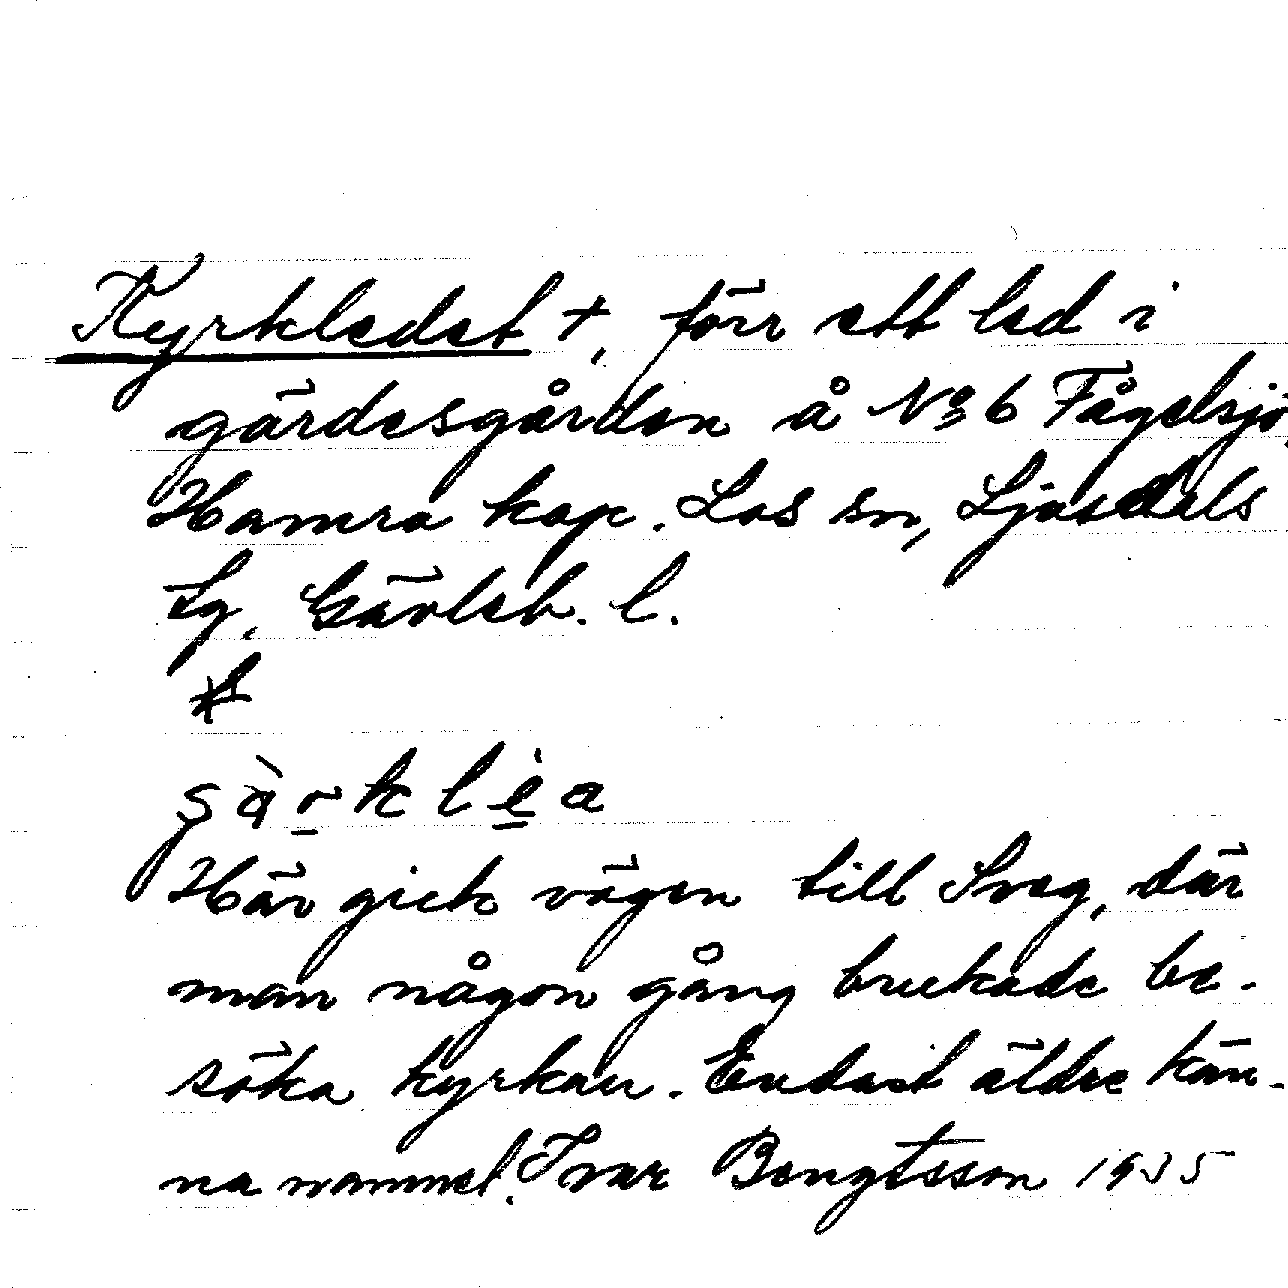 Kyrkledet +, förr ett led i
gärdesgården å No 6 Fågelsjö,
Hamra kap. Los sn, Ljusdals
tg, Gävleb. l.
Här gick vägen till Sveg, där
man någon gång brukade be-
söka kyrkan. Endast äldre kän-
na namnet. Ivar Bengtsson 1935